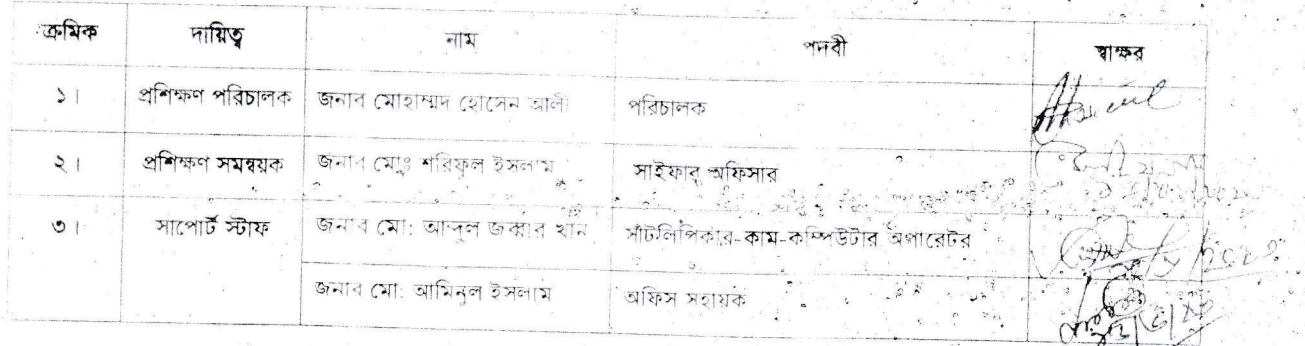 ক্রমিক দায়িত্ব নাম পদবী স্বাক্ষর
১। প্রশিক্ষণ পরিচালক জনাব মোহাম্মদ হোসেন আলী পরিচালক
২। প্রশিক্ষণ সমন্বয়ক জনাব মোঃ শরিফুল ইসলাম সাইফার অফিসার
৩। সাপোর্ট স্টাফ জনাব মো: আব্দুল জব্বার খান সাঁটলিপিকার-কাম-কম্পিউটার অপারেটর
জনাব মো: আমিনুল ইসলাম অফিস সহায়ক